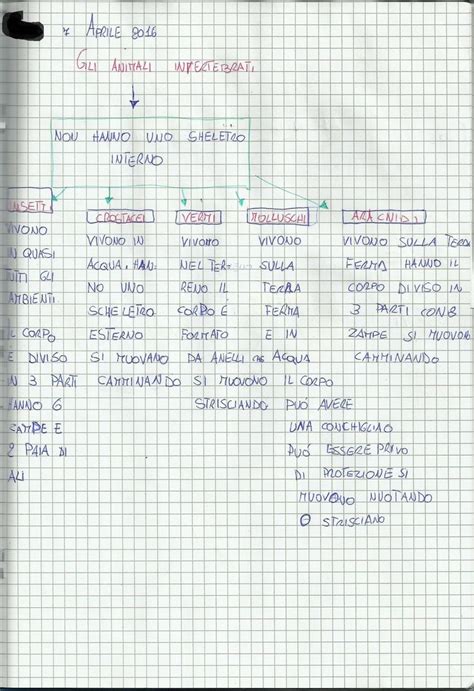 7 APRILE 2016
GLI ANIMALI INVERTEBRATI
NON HANNO UNO SHELETRO
INTERNO
INSETTI
VIVONO
IN QUASI
TUTTI GLI
AMBIENTI
IL CORPO
E DIVISO
IN 3 PARTI
HANNO 6
ZAMPE E
2 PAIA DI
ALI
CROSTACEI
VIVONO IN
ACQUA, HAN.
NO UNO
SCHELETRO
ESTERNO
SI MUOVANO
CAMMINANDO
VERMI
VIVONO
NEL TER-
RENO IL
CORPO È
FORMATO
DA ANELLI CHE
SI MUOVONO
STRISCIANDO
MOLLUSCHI
VIVONO
SULLA
TERRA
FERMA
E IN
ACQUA
IL CORPO
PUÓ AVERE
UNA CONCHIGLIAO
PUÓ ESSERE PRIVO
DI PROTEZIONE SI
MUOVONO NUOTANDO
O STRISCIANO
ARACNIDI
VIVONO SULLA TERRA
FERMA HANNO IL
CORPO DIVISO IN
3 PARTI CON 8
ZAMPE SI MUOVONO
CAMMINANDO